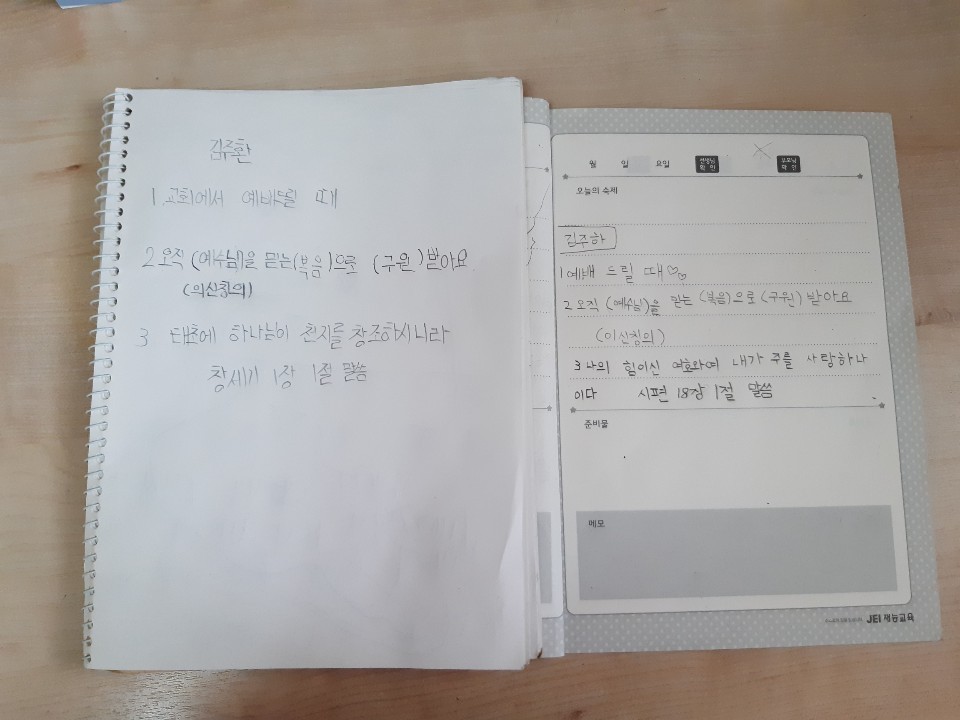 김주환
1. 교회에서 예배드릴 때
2 오직 (예수님)을 믿는 (복음)으로 (구원) 받아요
(의신칭의)
3 태초에 하나님이 천지를 창조하시니라
창세기 1장 1절 말씀
월 일 요일 선생님 확인 부모님 확인
오늘의 숙제
김주하
1 예배 드릴 때♡♡
2 오직 (예수님)을 믿는 (복음)으로 (구원) 받아요
(이신칭의)
3 나의 힘이신 여호와여 내가 주를 사랑하나
이다 시편 18장 1절 말씀
준비물
메모
JEI 재능교육